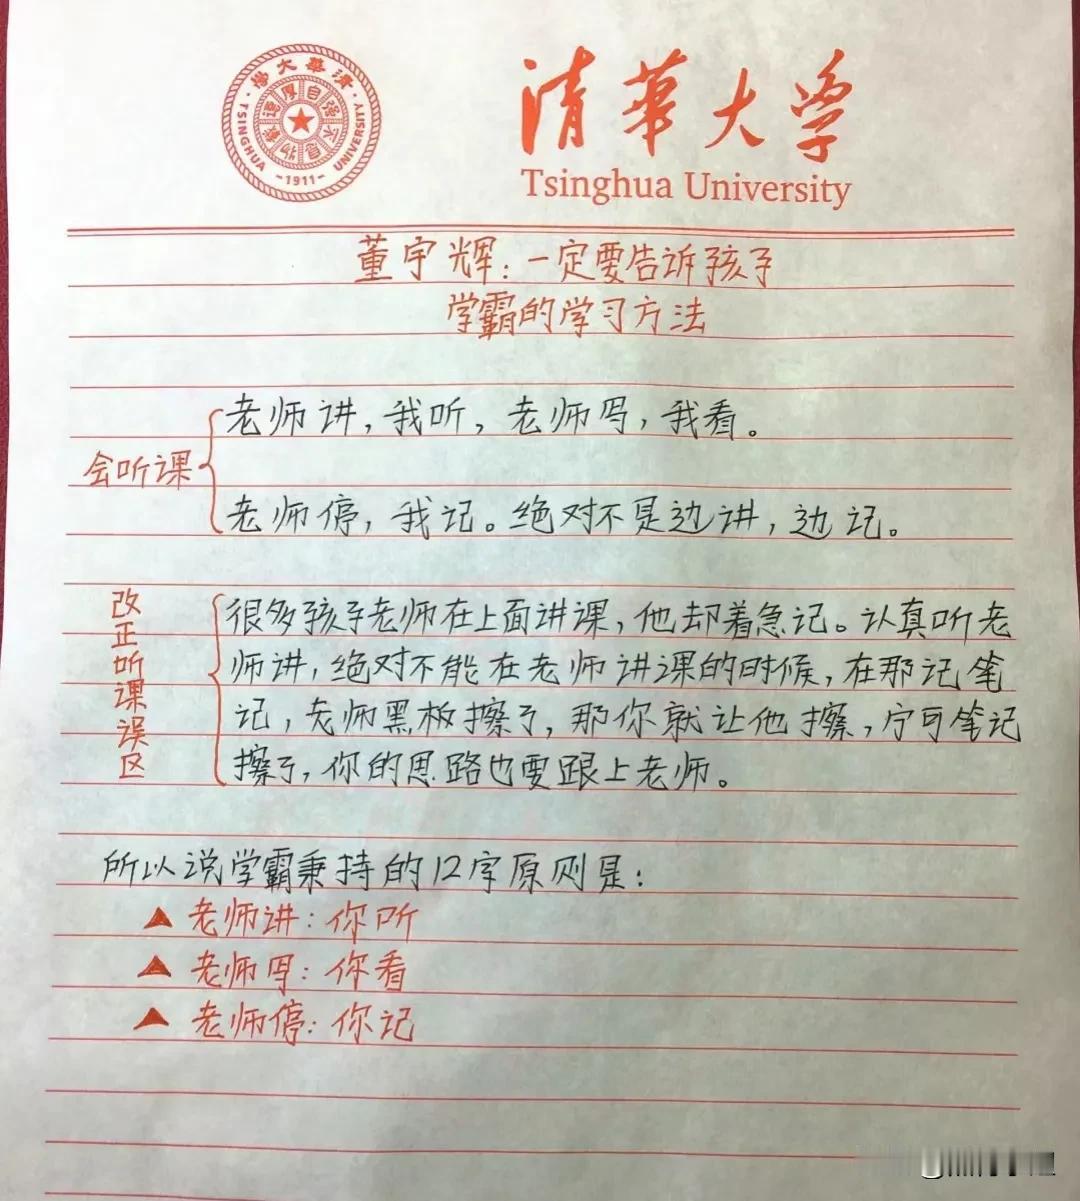 清華大學
TSINGHUA UNIVERSITY
自强不息
厚德載物
-1911-
清華大学
Tsinghua University
董宇辉：一定要告诉孩子
学霸的学习方法
会听课
老师讲，我听，老师写，我看。
老师停，我记。绝对不是边讲，边记。
改正听课误区
很多孩子老师在上面讲课，他却着急记。认真听老
师讲，绝对不能在老师讲课的时候，在那记笔
记，老师黑板擦了，那你就让他擦，宁可笔记
擦了，你的思路也要跟上老师。
所以说学霸秉持的12字原则是：
▲老师讲：你听
▲老师写：你看
▲老师停：你记